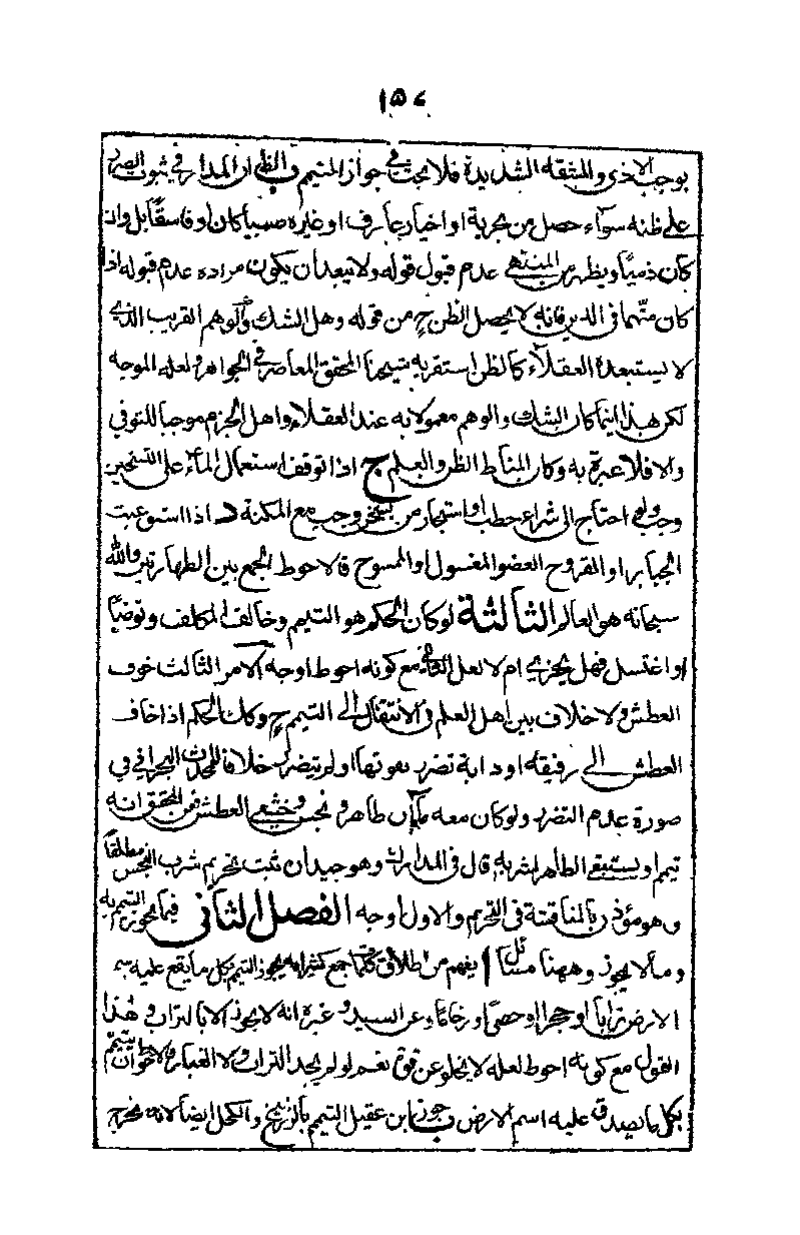 ١٥٤
يوجب الاذى والمشقه الشديدة فلا بحث فى جواز التيمم ب الظ ان المدار فى ثبوت الضرر
على ظنه سواء حصل من تجربة او اخبار عارف او غيره صبيا كان او فاسقا بل وان
كان ذميا ويظهر من المنتهى عدم قبول قوله ولا تبعد ان يكون مراده عدم قبوله اذا
كان متهما فى الدين فانه لا يحصل الظن ح من قوله وهل الشك والوهم القريب الذى
لا يستبعده العقلاء كالظن استقربه شيخنا المحقق المعاصر فى الجواهر ولعله الموجه
لكن هذا اينما كان الشك والوهم معمولا به عند العقلاء واهل الجزم موجبا للتوقى
والا فلا عبرة به وكان المناط الظن والعلم ج اذا توقف استعمال الماء على التسخين
وجب ولو احتاج الى شراء حطب او استيجار من يسخن وجب مع المكنة د اذا استوعبت
الجباير او المقروح العضو المغسول او الممسوح فالاحوط الجمع بين الطهارتين والله
سبحانه هو العالم الثالثة لو كان الحكم هو التيمم وخالف المكلف وتوضأ
او اغتسل فهل يجزى ام لا لعل الثانى مع كونه احوط اوجه الامر الثالث خوف
العطش ولا خلاف بين اهل العلم فى الانتقال الى التيمم ح وكك الحكم اذا خاف
العطش الى رفيقه او دابة تضرر بفوتها او لم يتضرر خلافا للمحدث البحرانى فى
صورة عدم التضرر ولو كان معه ماءان طاهر ونجس وخشى العطش فعن المحقق انه
تيمم او يستبقى الطاهر لشربه قال فى المدارك وهو جيد ان ثبت تحريم شرب النجس مطلقا
وهو مؤذن بالمناقشة فى التحريم والاول اوجه الفصل الثانى فيما يجوز التيمم به
وما لا يجوز وههنا مسائل ا يفهم من اطلاق جمع كثير انه يجوز التيمم بكل ما يقع عليه اسم
الارض ترابا او حجرا او حصى او رخاما وعن السيد وغيره انه لا يجوز الا بالتراب وهذا
القول مع كونه احوط لعله لا يخلو عن قوة نعم لو لم يجد التراب ولا الغبار فالاحوط ان يتيمم
بكل ما يصدق عليه اسم الارض ب جوز ابن عقيل التيمم بالزرنيخ والكحل ايضا لانه مخرج